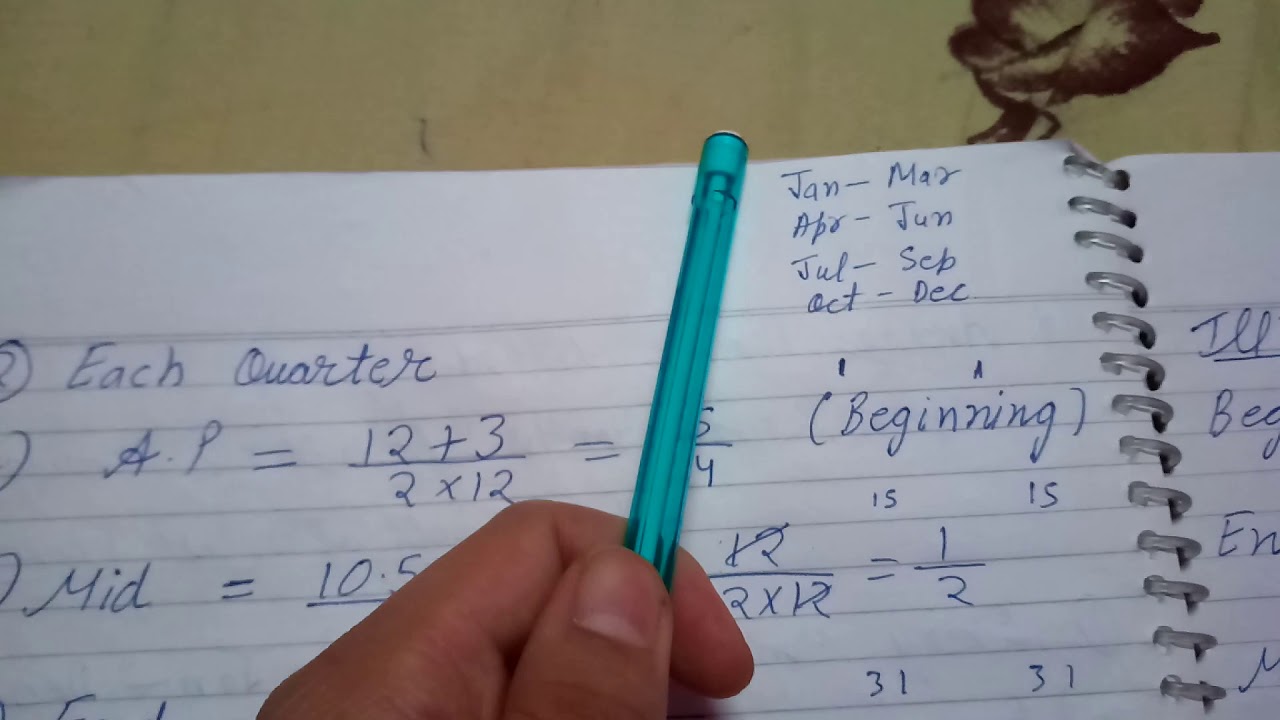 Jan - Mar
Apr - Jun
Jul - Sep
Oct - Dec
2) Each Quarter
1 1
) A.P = 12 + 3 / 2 x 12 = 5 / 4 (Beginning)
15 15
) Mid = 10.5 12 / 2 x 12 = 1 / 2
31 31
Ill
Beg
En
M